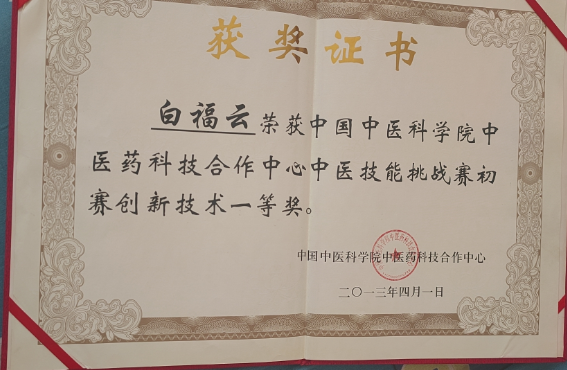 获奖证书
白福云荣获中国中医科学院中
医药科技合作中心中医技能挑战赛初
赛创新技术一等奖。
中国中医科学院中医药科技合作中心
二〇一三年四月一日